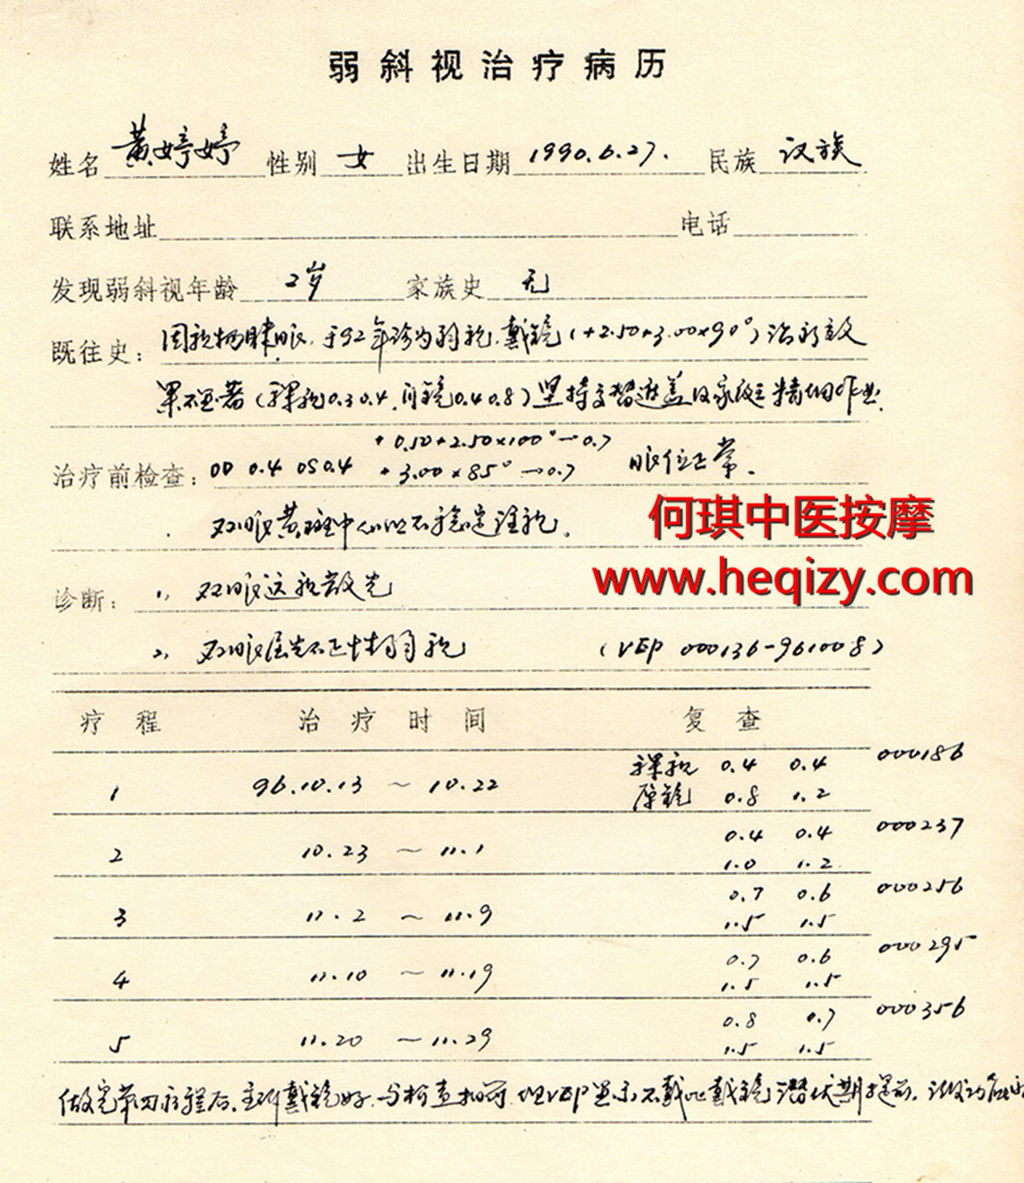 弱斜视治疗病历
姓名 黄婷婷 性别 女 出生日期 1990.6.27. 民族 汉族
联系地址 电话
发现弱斜视年龄 2岁 家族史 无
既往史: 因视物眯眼,于92年诊为弱视,戴镜(+2.50+3.00×90°)治疗效
果不显著(裸视0.3 0.4, 戴镜0.4 0.8)坚持交替遮盖及家庭精细作业.
+0.50+2.50×100°→0.7
治疗前检查: OD 0.4 OS 0.4 +3.00×85°→0.7 眼位正常.
双眼黄斑中心凹不稳定注视.
何琪中医按摩
www.heqizy.com
诊断: 1, 双眼远视散光
2, 双眼屈光不正性弱视 (VEP 000136-961008)
疗程 治疗时间 复查
1 96.10.13 ~ 10.22 裸视 0.4 0.4 000186
原镜 0.8 1.2
2 10.23 ~ 11.1 0.4 0.4 000237
1.0 1.2
3 11.2 ~ 11.9 0.7 0.6 000256
1.5 1.5
4 11.10 ~ 11.19 0.7 0.6 000295
1.5 1.5
5 11.20 ~ 11.29 0.8 0.7 000356
1.5 1.5
做完第四疗程后,主诉戴镜好,与检查相符,但VEP显示不戴比戴镜潜伏期提前,